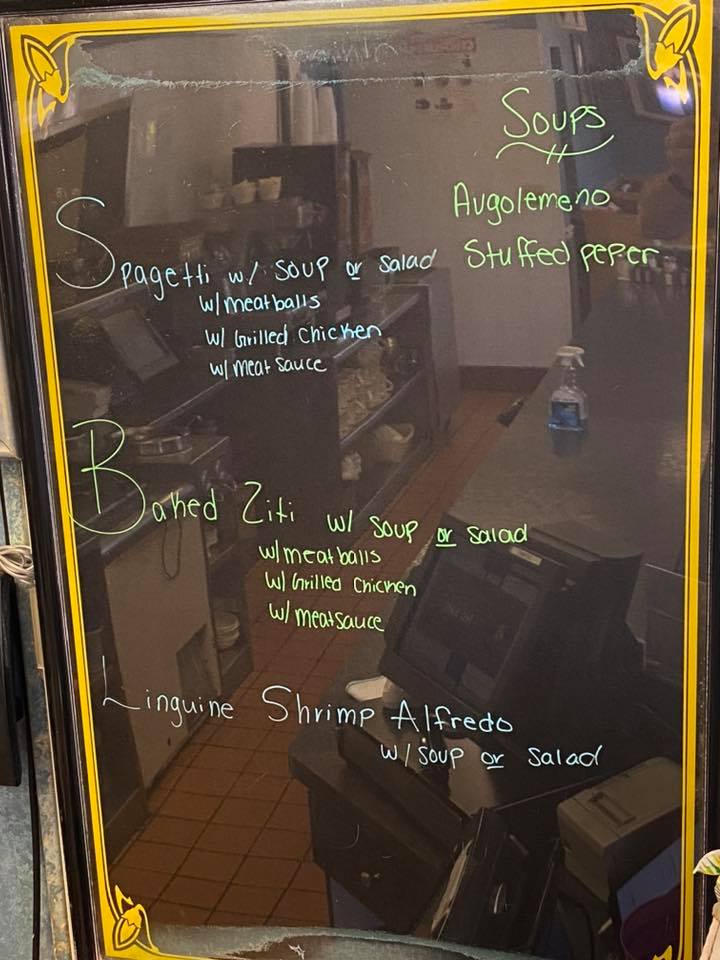 Soups
Augolemeno
Stuffed peper
Spagetti w/ soup or salad
w/meatballs
w/ Grilled Chicken
w/ meat sauce
Baked Ziti w/ soup or salad
w/meatballs
w/ Grilled Chicken
w/ meatsauce
Linguine Shrimp Alfredo
w/soup or salad